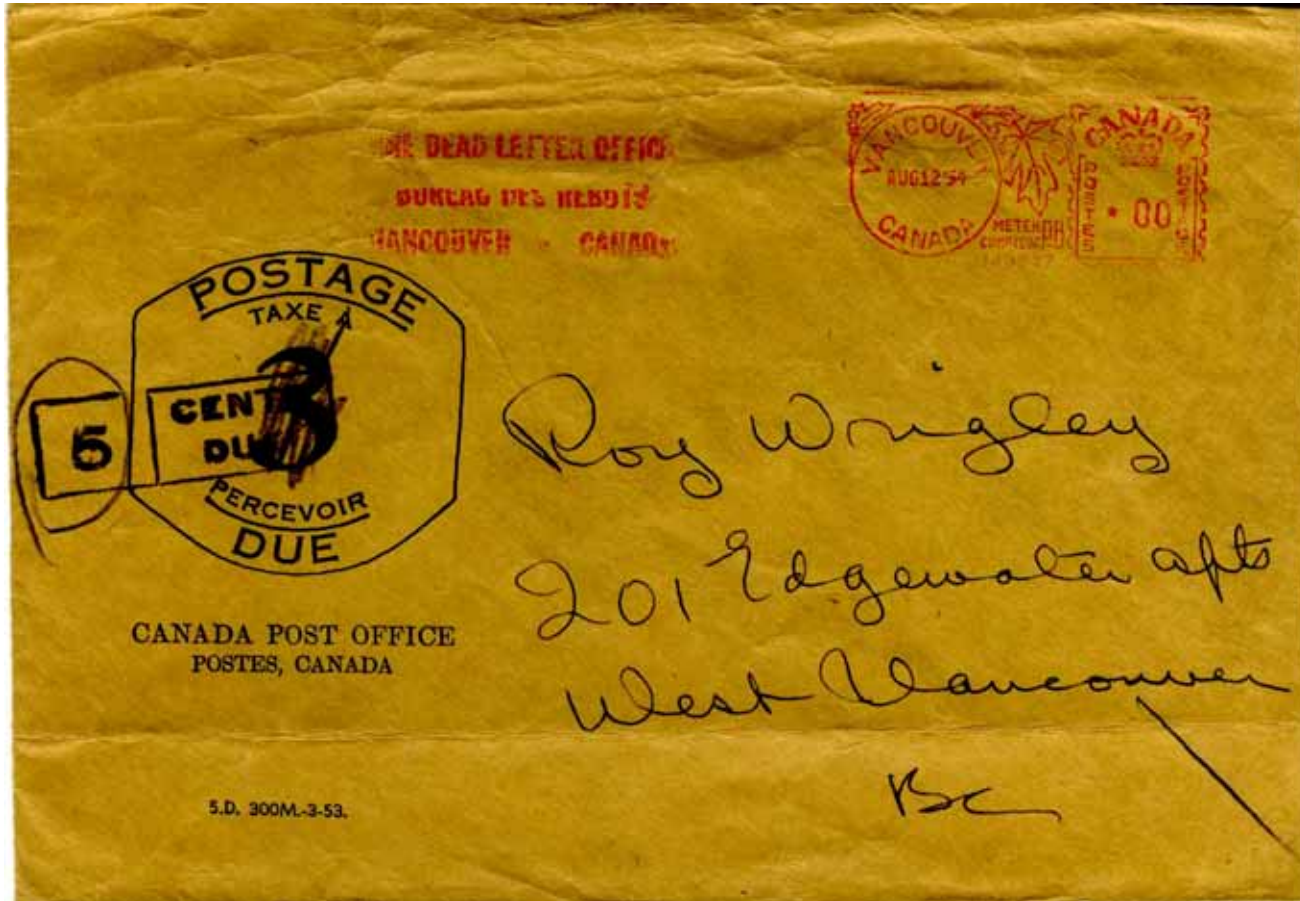 THE DEAD LETTER OFFICE
BUREAU DES REBUTS
VANCOUVER - CANADA
VANCOUVER
AUG 12 54
CANADA
METER
CANADA
POSTES
POSTAGE
· 00
POSTAGE
TAXE A
5
CENTS
DUE
3
PERCEVOIR
DUE
CANADA POST OFFICE
POSTES, CANADA
5.D. 300M.-3-53.
Roy Wrigley
201 Edgewater apts
West Vancouver
BC